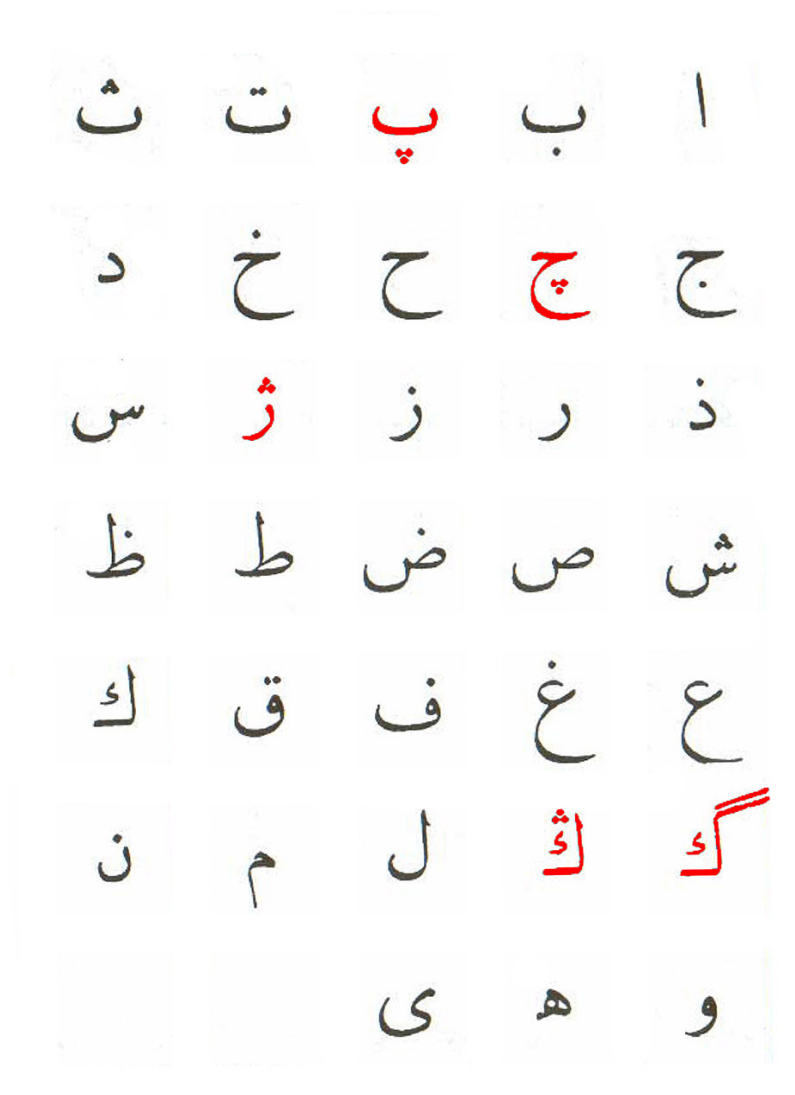 ا ب پ ت ث
ج چ ح خ د
ذ ر ز ژ س
ش ص ض ط ظ
ع غ ف ق ك
گ ڭ ل م ن
و ه ی